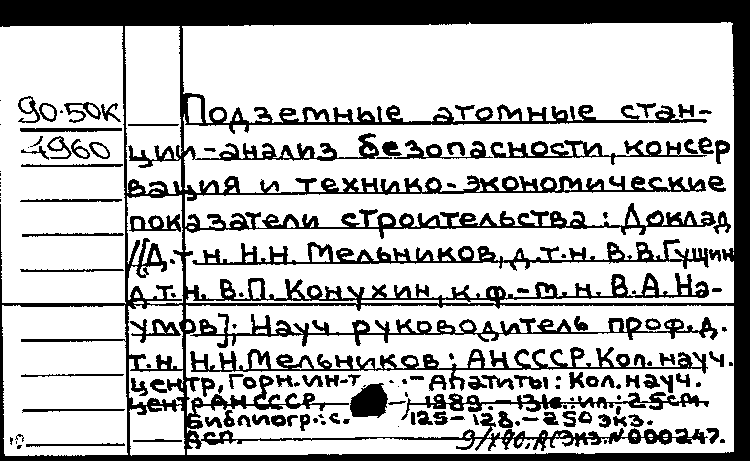 90-50K
4960
Подземные атомные стан-
ции-анализ безопасности, консер
вация и технико-экономические
показатели строительства: Доклад
//[Д.т.н. Н.Н. Мельников, д.т.н. В.В. Гущин
д.т.н. В.П. Конухин, к.ф.-м.н. В.А. На-
умов]; Науч. руководитель проф. д.
т.н. Н.Н. Мельников; АН СССР. Кол. науч.
центр, Горн. ин-т - Апатиты: Кол. науч.
центр АН СССР, 1989. - 131с.: ил.; 25см.
Библиогр.: с. 125-128. - 250 экз.
ДСП. Экз. N 000247.